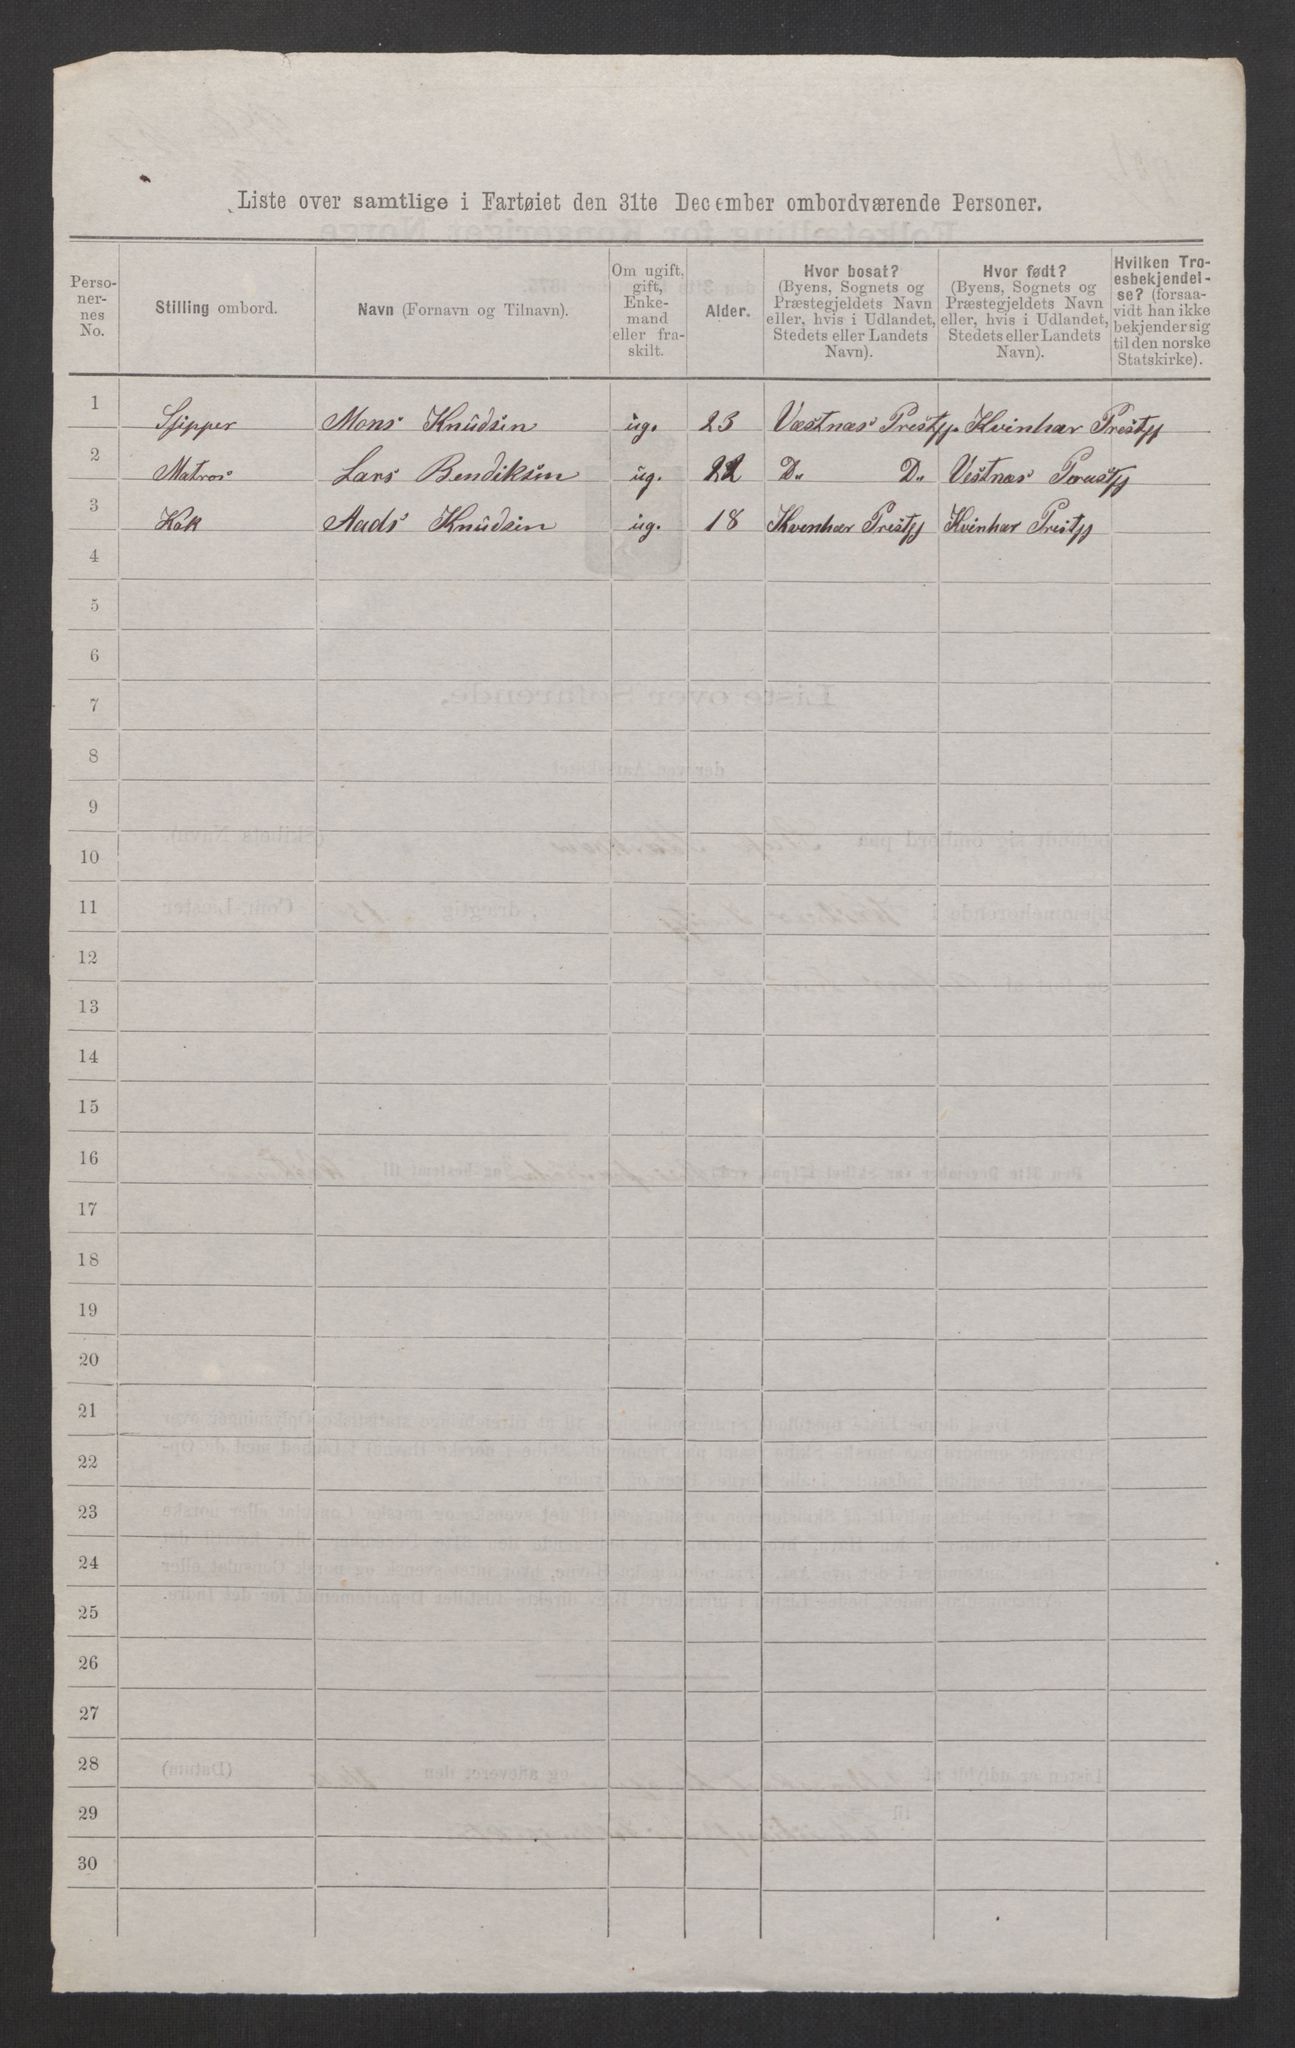 Liste over samtlige i Fartøiet den 31te December ombordværende Personer.
Personernes No. | Stilling ombord. | Navn (Fornavn og Tilnavn). | Om ugift, gift, Enkemand eller fraskilt. | Alder. | Hvor bosat? (Byens, Sognets og Præstegjeldets Navn eller, hvis i Udlandet, Stedets eller Landets Navn). | Hvor født? (Byens, Sognets og Præstegjeldets Navn eller, hvis i Udlandet, Stedets eller Landets Navn). | Hvilken Troesbekjendelse? (forsaavidt han ikke bekjender sig til den norske Statskirke).
1 Skipper Mons Knudsin ug. 23 Væstnæs Prestgj. Kvinhær Prestgj
2 Matros Lars Bendiksin ug. 22 D„ D„ Vestnæs
3 Kok Aads Knudsin ug. 18 Kvenhær Prestgj Kvinhær Prestgj
4
5
6
7
8
9
10
11
12
13
14
15
16
17
18
19
20
21
22
23
24
25
26
27
28
29
30